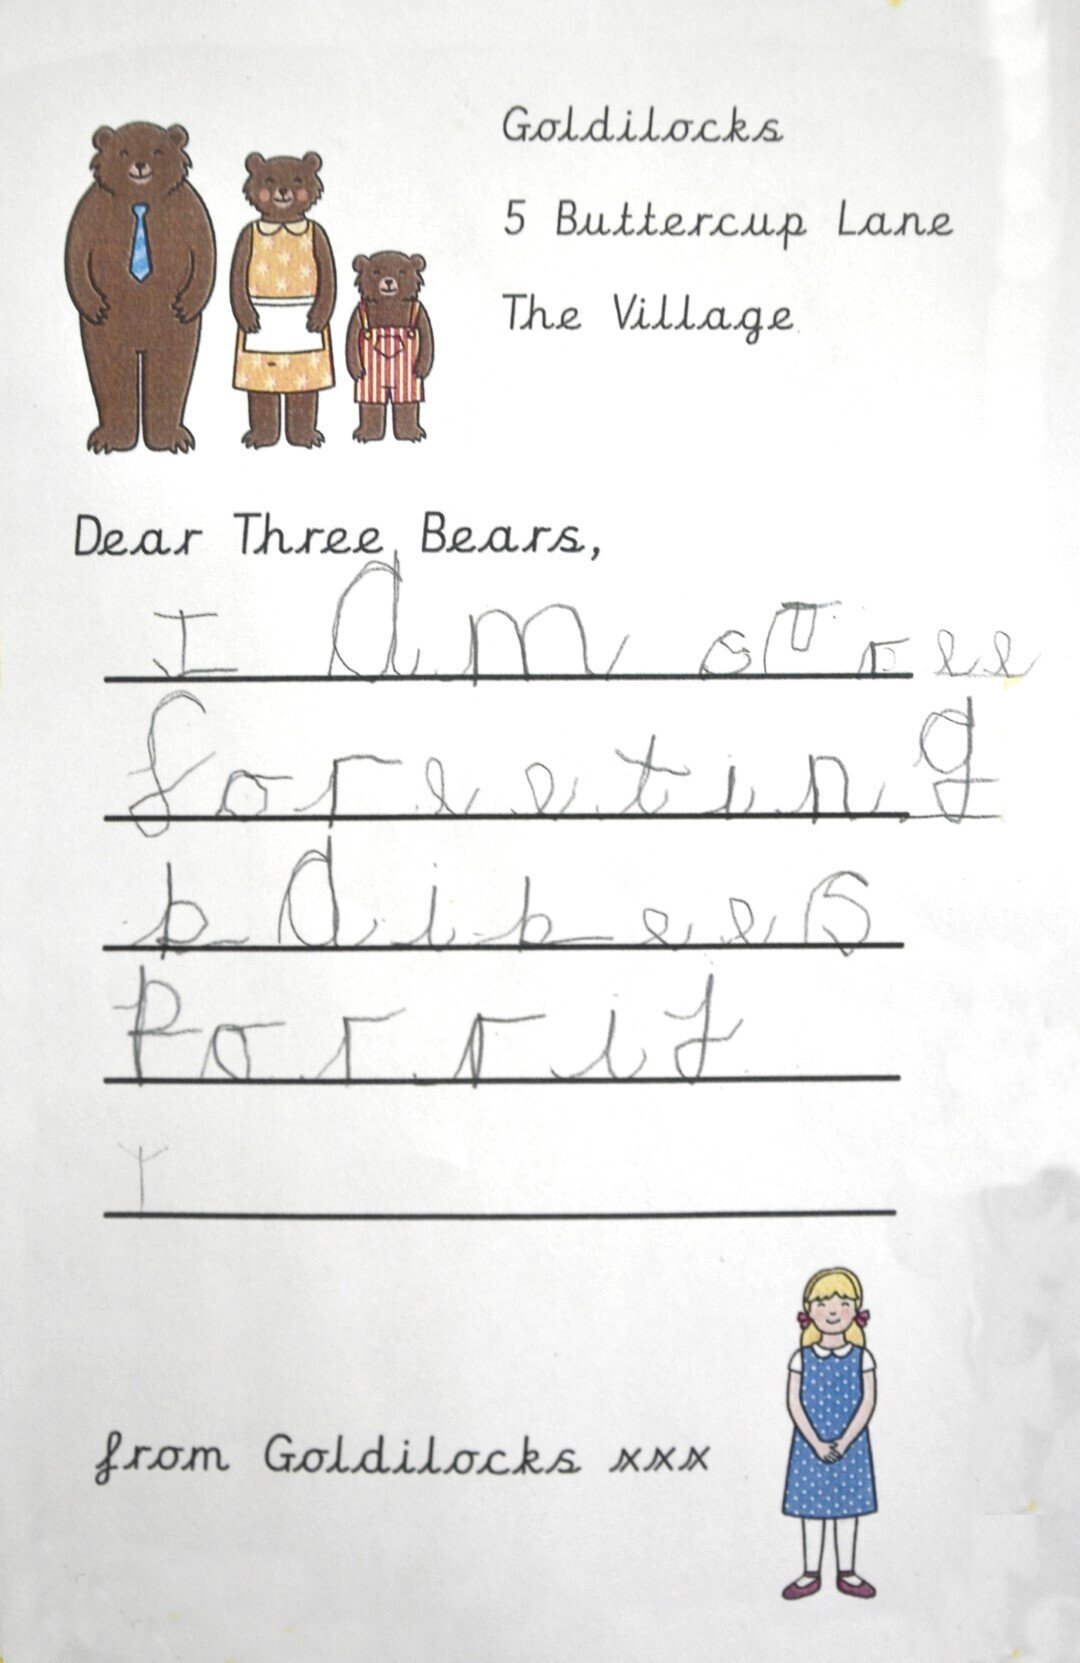 Goldilocks
5 Buttercup Lane
The Village
Dear Three Bears,
I am soree
foreeting
baibees
Porrij
from Goldilocks xxx